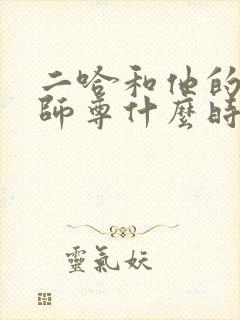 二哈和他的
師尊什麼時
靈氣妖